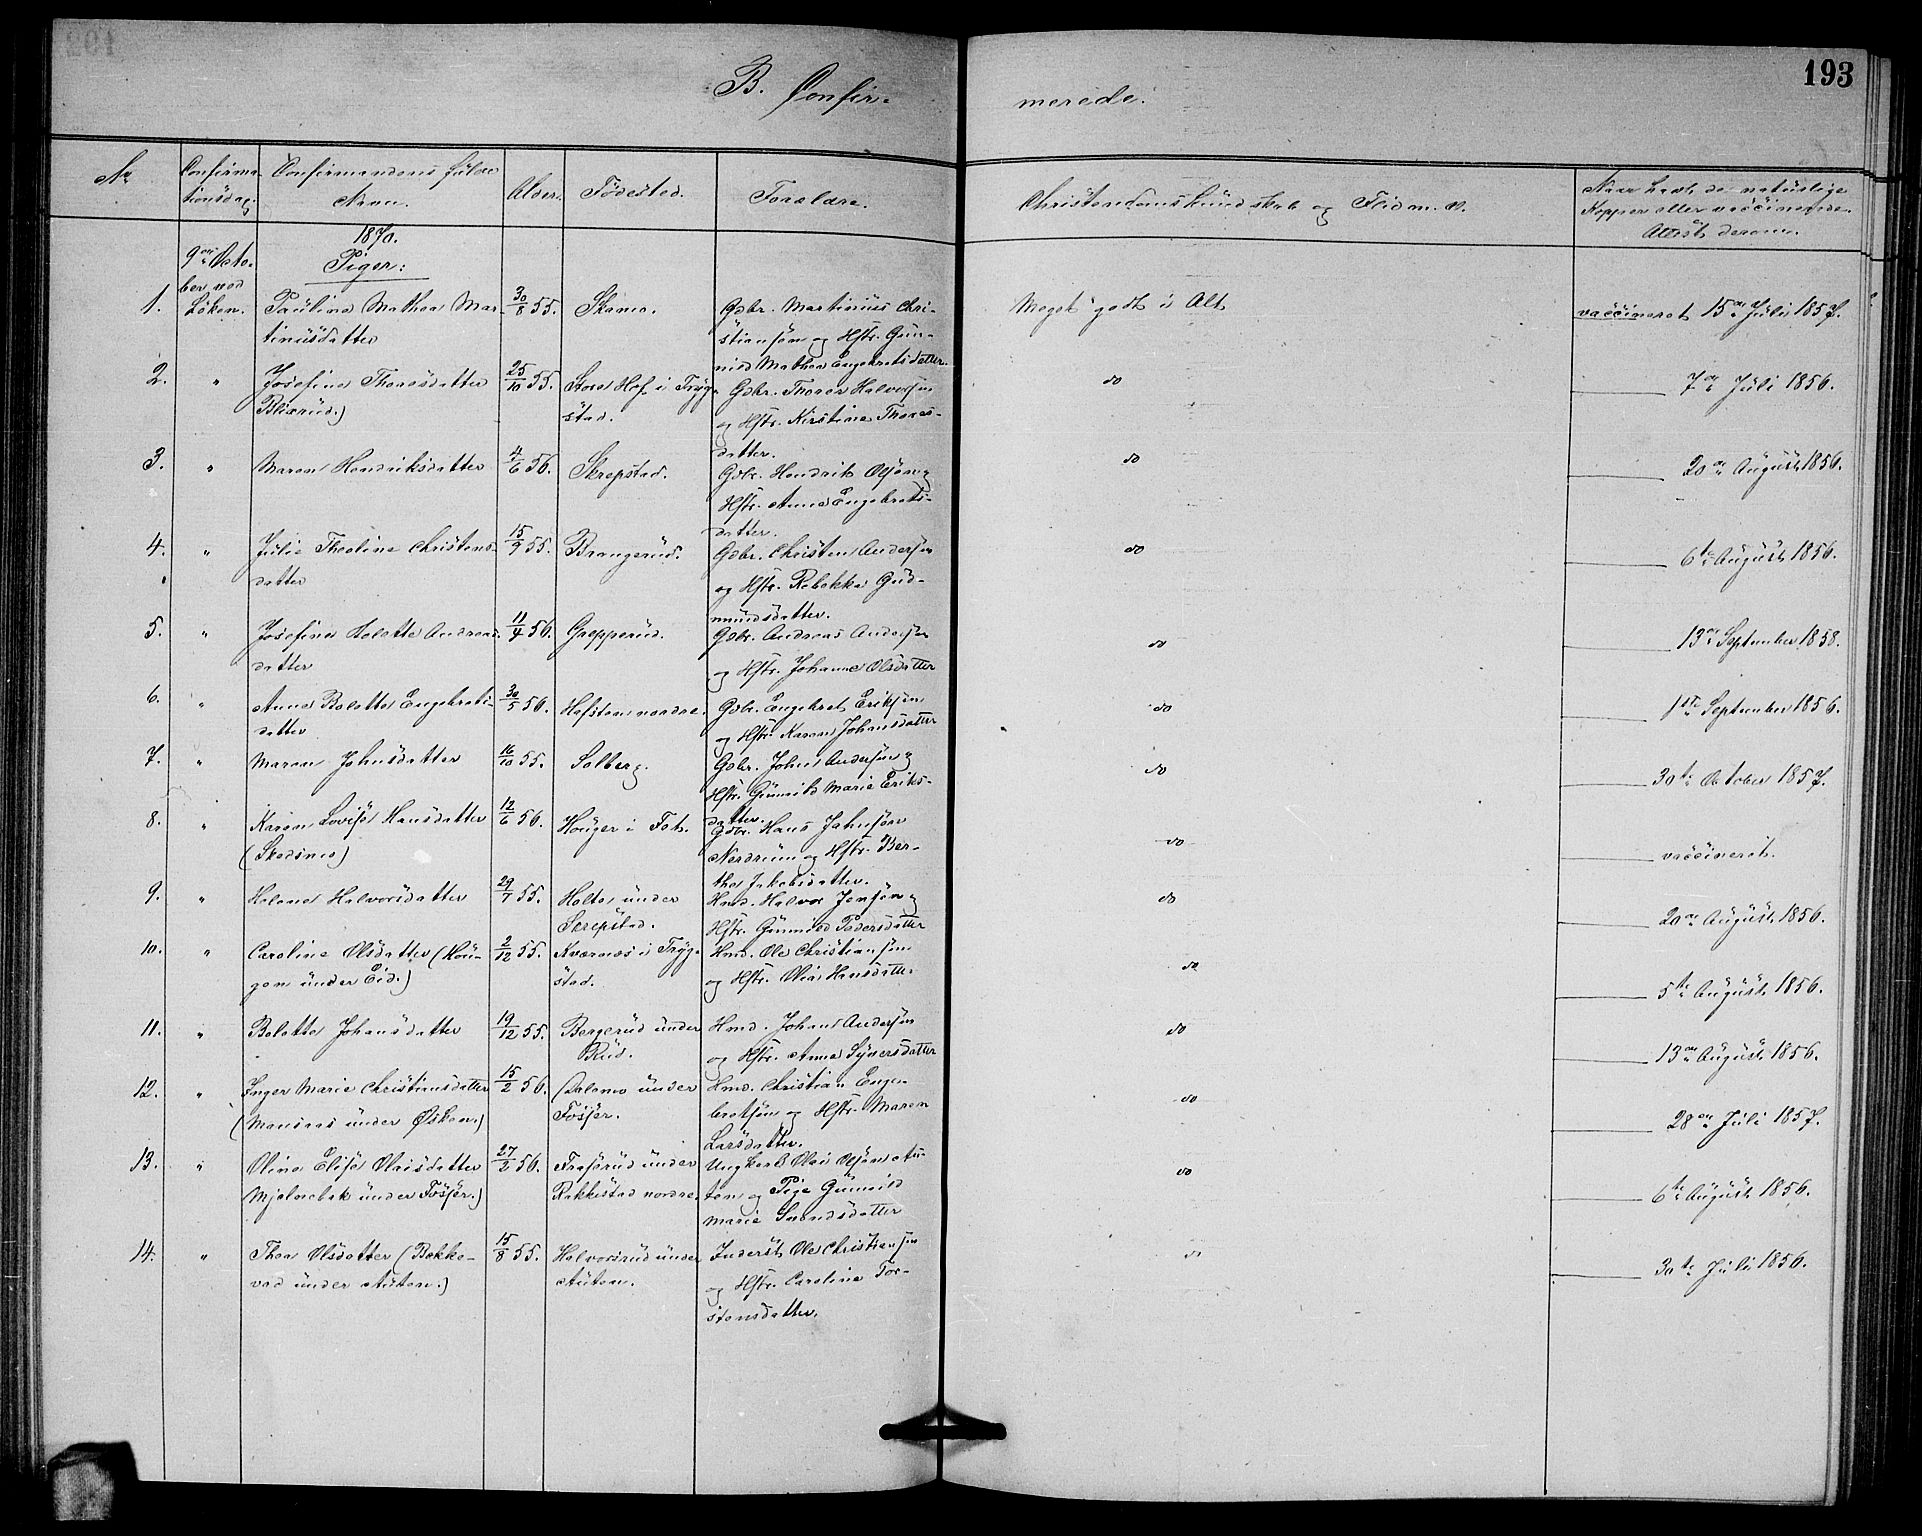 193
B. Confir-
merede.
No
Confirma-
tionsdag.
Confirmandens fulde
Navn.
Alder.
Fødested.
Forældre.
Christendomskundskab og Flid m. v.
Naar havt de naturlige
Kopper eller vaccinerede.
Attest derom.
9de Octo-
ber ved
Løken.
1870.
Piger:
1. Pauline Mathea Mar-
tinusdatter
30/8 55. Skamo.
Gdbr. Martinius Chri-
stiansøn og Hstr. Gun-
nild Mathea Engebretsdatter.
Meget godt i Alt
vaccineret 15de Juli 1857.
2. " Josefine Thoresdatter
Blixrud.)
25/10 55. Store Hof i Tryg-
stad.
Gdbr. Thorer Halvorsen
og Hstr. Kirstine Thores-
datter.
do
7de Juli 1856.
3. " Maren Hendriksdatter
4/6 56. Skrepstad.
Gdbr. Hendrik Olsøn og
Hstr. Anne Engebrets-
datter.
do
20de August 1856.
4. " Julie Theoline Christens-
datter
15/9 55. Brangerud.
Gdbr. Christen Andersen
og Hstr. Rebekka Gud-
mundsdatter.
do
6te August 1856.
5. " Josefine Helette Andreas-
datter
11/4 56. Grepperud.
Gdbr. Andreas Andersen
og Hstr. Johanne Olsdatter
do
13de September 1858.
6. " Anne Bolette Engebrets-
datter
30/5 56. Hofsten nordre.
Gdbr. Engebret Eriksen
og Hstr. Karen Johansdatter
do
1ste September 1856.
7. " Maren Johnsdatter
16/10 55. Solberg.
Gdbr. John Andersen og
Hstr. Gunnild Marie Eriks-
datter.
do
30te October 1857.
8. " Karen Lovise Hansdatter
(Skedsmo)
12/6 56. Houger i Feh.
Gdbr. Hans Jahnsøn
Nordrum og Hstr. Ber-
the Jakobsdatter.
do
vaccineret.
9. " Helene Halvorsdatter
29/7 55. Holte under
Skrepstad.
Hmd. Halvor Jensøn og
Hstr. Gunnild Pedersdatter
do
20de August 1856.
10. " Caroline Olsdatter (Hou-
gen under Eid.)
2/12 55. Kværnes i Tryg-
stad.
Hmd. Ole Christiansøn
og Hstr. Olia Hansdatter
do
5te August 1856.
11. " Bolette Johansdatter
19/12 55. Bergerud under
Rud.
Hmd. Johan Andersen
og Hstr. Anne Syversdatter
do
13de August 1856.
12. " Inger Marie Christiansdatter
(Mansaas under Øsken.)
15/2 56. Dalemo under
Fosser.
Hmd. Christian Enge-
bretsøn og Hstr. Maren
Larsdatter.
do
28de Juli 1857.
13. " Oline Elise Olaisdatter
Mjelnebak under Fosser.)
27/2 56. Froserud under
Rakkestad nordre.
Ungkarl Olai Olsen Au-
ten og Pige Gunnild
Marie Svendsdatter
do
6te August 1856.
14. " Thea Olsdatter (Bekke-
vad under Auten.)
15/8 55. Halvorsrud under
Auten.
Inderst Ole Christiansen
og Hstr. Caroline Tor-
stensdatter.
do
30te Juli 1856.